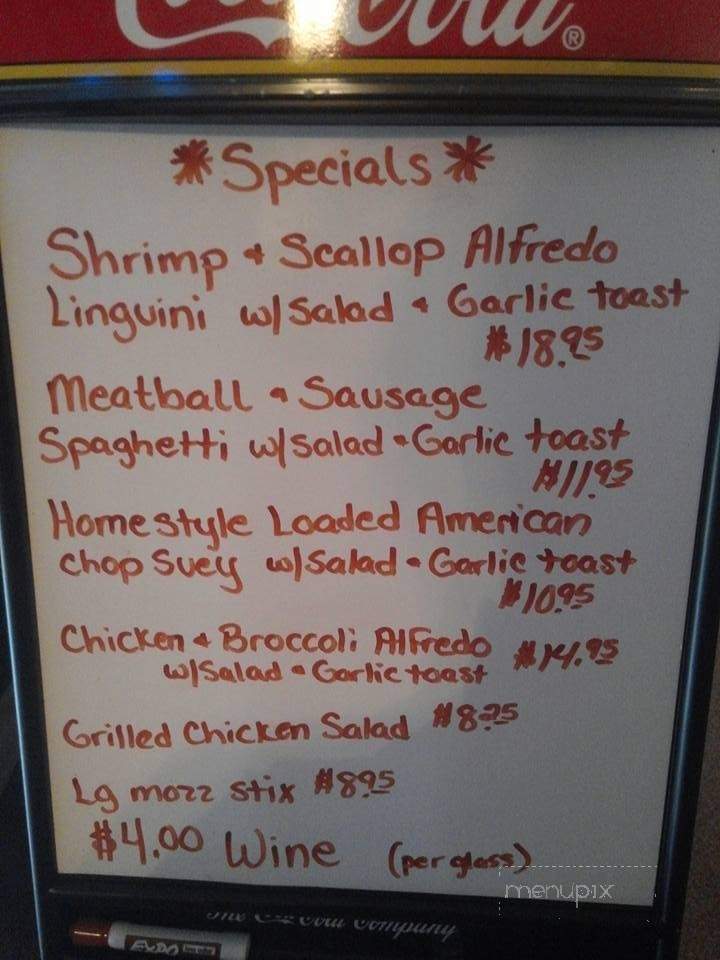 Coca-Cola®
*Specials*
Shrimp & Scallop Alfredo
Linguini w/Salad & Garlic toast
$18.95
Meatball & Sausage
Spaghetti w/salad & Garlic toast
$11.95
Homestyle Loaded American
Chop Suey w/Salad & Garlic toast
$10.95
Chicken & Broccoli Alfredo $14.95
w/Salad & Garlic toast
Grilled Chicken Salad $8.25
Lg mozz stix $8.95
$4.00 Wine (per glass)
menupix
The Coca-Cola Company
EXPO